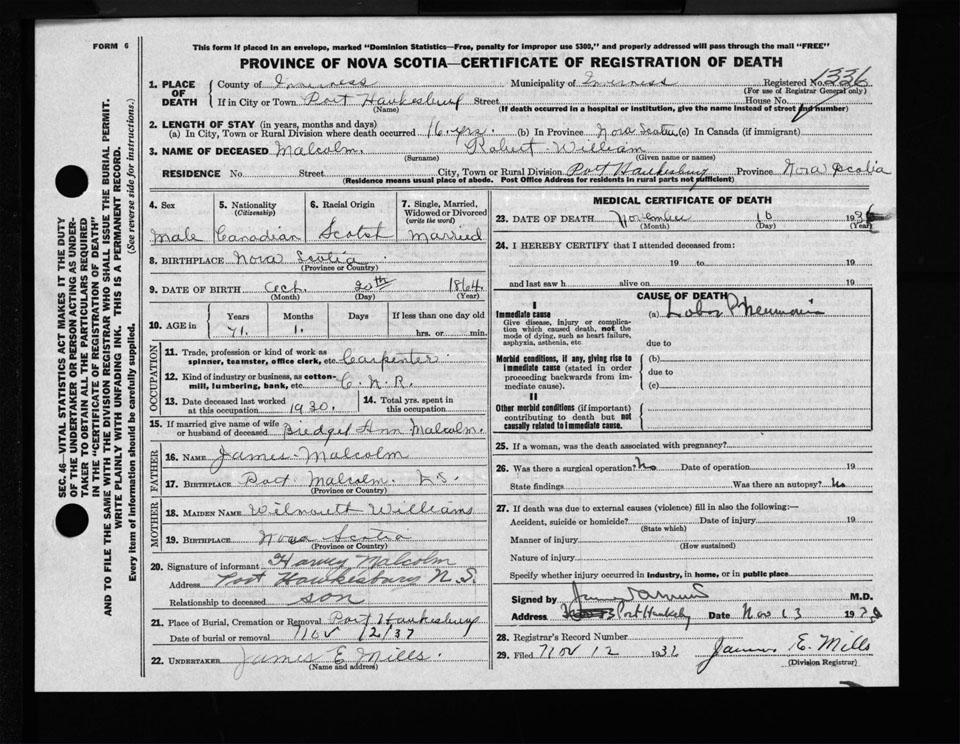 FORM 6
This form if placed in an envelope, marked "Dominion Statistics—Free, penalty for improper use $300," and properly addressed will pass through the mail "FREE"
PROVINCE OF NOVA SCOTIA—CERTIFICATE OF REGISTRATION OF DEATH
1. PLACE OF DEATH County of Inverness Municipality of Inverness Registered No. 1336
(For use of Registrar General only)
If in City or Town Port Hawkesbury Street House No.
(Name) (If death occurred in a hospital or institution, give the name instead of street and number)
2. LENGTH OF STAY (in years, months and days)
(a) In City, Town or Rural Division where death occurred 16 yrs. (b) In Province Nova Scotia (c) In Canada (if immigrant)
3. NAME OF DECEASED Malcolm. Robert William
(Surname) (Given name or names)
RESIDENCE No. Street City, Town or Rural Division Port Hawkesbury Province Nova Scotia
(Residence means usual place of abode. Post Office Address for residents in rural parts not sufficient)
4. Sex
Male
5. Nationality
(Citizenship)
Canadian
6. Racial Origin
Scotch
7. Single, Married, Widowed or Divorced
(write the word)
Married
8. BIRTHPLACE Nova Scotia
(Province or Country)
9. DATE OF BIRTH 20th 1864.
(Month) (Day) (Year)
10. AGE in Years Months Days If less than one day old
71. 1. hrs. or min.
OCCUPATION
11. Trade, profession or kind of work as
spinner, teamster, office clerk, etc. Carpenter.
12. Kind of industry or business, as cotton-
mill, lumbering, bank, etc. C.N.R.
13. Date deceased last worked
at this occupation 1930.
14. Total yrs. spent in
this occupation
15. If married give name of wife
or husband of deceased Ann Malcolm.
FATHER
16. Name James Malcolm
17. Birthplace Port Malcolm. N.S.
(Province or Country)
MOTHER
18. Maiden Name Williams
19. Birthplace Nova Scotia
(Province or Country)
20. Signature of informant Harvey Malcolm
Address Port Hawkesbury N.S.
Relationship to deceased son
21. Place of Burial, Cremation or Removal Port Hawkesbury
Date of burial or removal Nov 12/37
22. UNDERTAKER James E Mills.
(Name and address)
MEDICAL CERTIFICATE OF DEATH
23. DATE OF DEATH November 10 193
(Month) (Day) (Year)
24. I HEREBY CERTIFY that I attended deceased from:
19 to 19
and last saw h alive on 19
CAUSE OF DEATH
I
Immediate cause (a) Lobar Pneumonia
Give disease, injury or complica-
tion which caused death, not the
mode of dying, such as heart failure,
asphyxia, asthenia, etc
due to
Morbid conditions, if any, giving rise to
immediate cause (stated in order
proceeding backwards from im-
mediate cause).
(b)
due to
(c)
II
Other morbid conditions (if important)
contributing to death but not
causally related to immediate cause.
25. If a woman, was the death associated with pregnancy?
26. Was there a surgical operation? No Date of operation 19
State findings Was there an autopsy? No
27. If death was due to external causes (violence) fill in also the following:—
Accident, suicide or homicide? Date of injury 19
(State which)
Manner of injury
(How sustained)
Nature of injury
Specify whether injury occurred in industry, in home, or in public place
Signed by M.D.
Address Port Hawkesby Date Nov 13 19
28. Registrar's Record Number
29. Filed Nov 12 193 James E. Mills
(Division Registrar)
SEC. 46—VITAL STATISTICS ACT MAKES IT THE DUTY
OF THE UNDERTAKER OR PERSON ACTING AS UNDER-
TAKER TO OBTAIN ALL THE PARTICULARS REQUIRED
IN THE "CERTIFICATE OF REGISTRATION OF DEATH"
AND TO FILE THE SAME WITH THE DIVISION REGISTRAR WHO SHALL ISSUE THE BURIAL PERMIT.
WRITE PLAINLY WITH UNFADING INK. THIS IS A PERMANENT RECORD.
Every item of information should be carefully supplied. (See reverse side for instructions.)